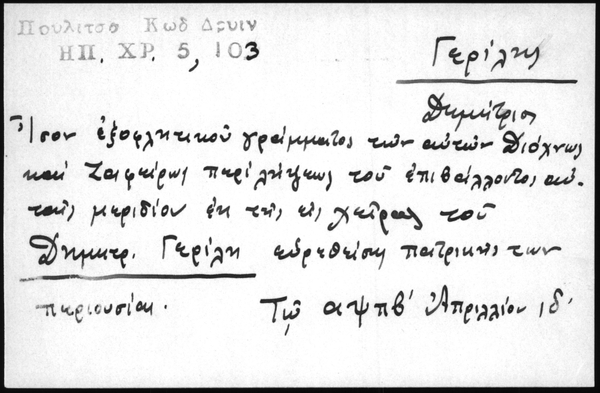 Πουλιτσα Κωδ Δρυιν
ΗΠ. ΧΡ. 5, 103
Γερίλης
Δημήτριος
Ἴσον ἐξοφλητικοῦ γράμματος τῶν αὐτῶν
καὶ Ζαφείρως περιλήψεως τοῦ ἐπιβάλλοντος αὐ-
ταῖς μεριδίου ἐκ τῆς εἰς χεῖρας τοῦ
Δημητρ. Γερίλη εὑρεθείσης πατρικῆς των
περιουσίας. Τῷ αψπβ' Ἀπριλλίου ιδ'